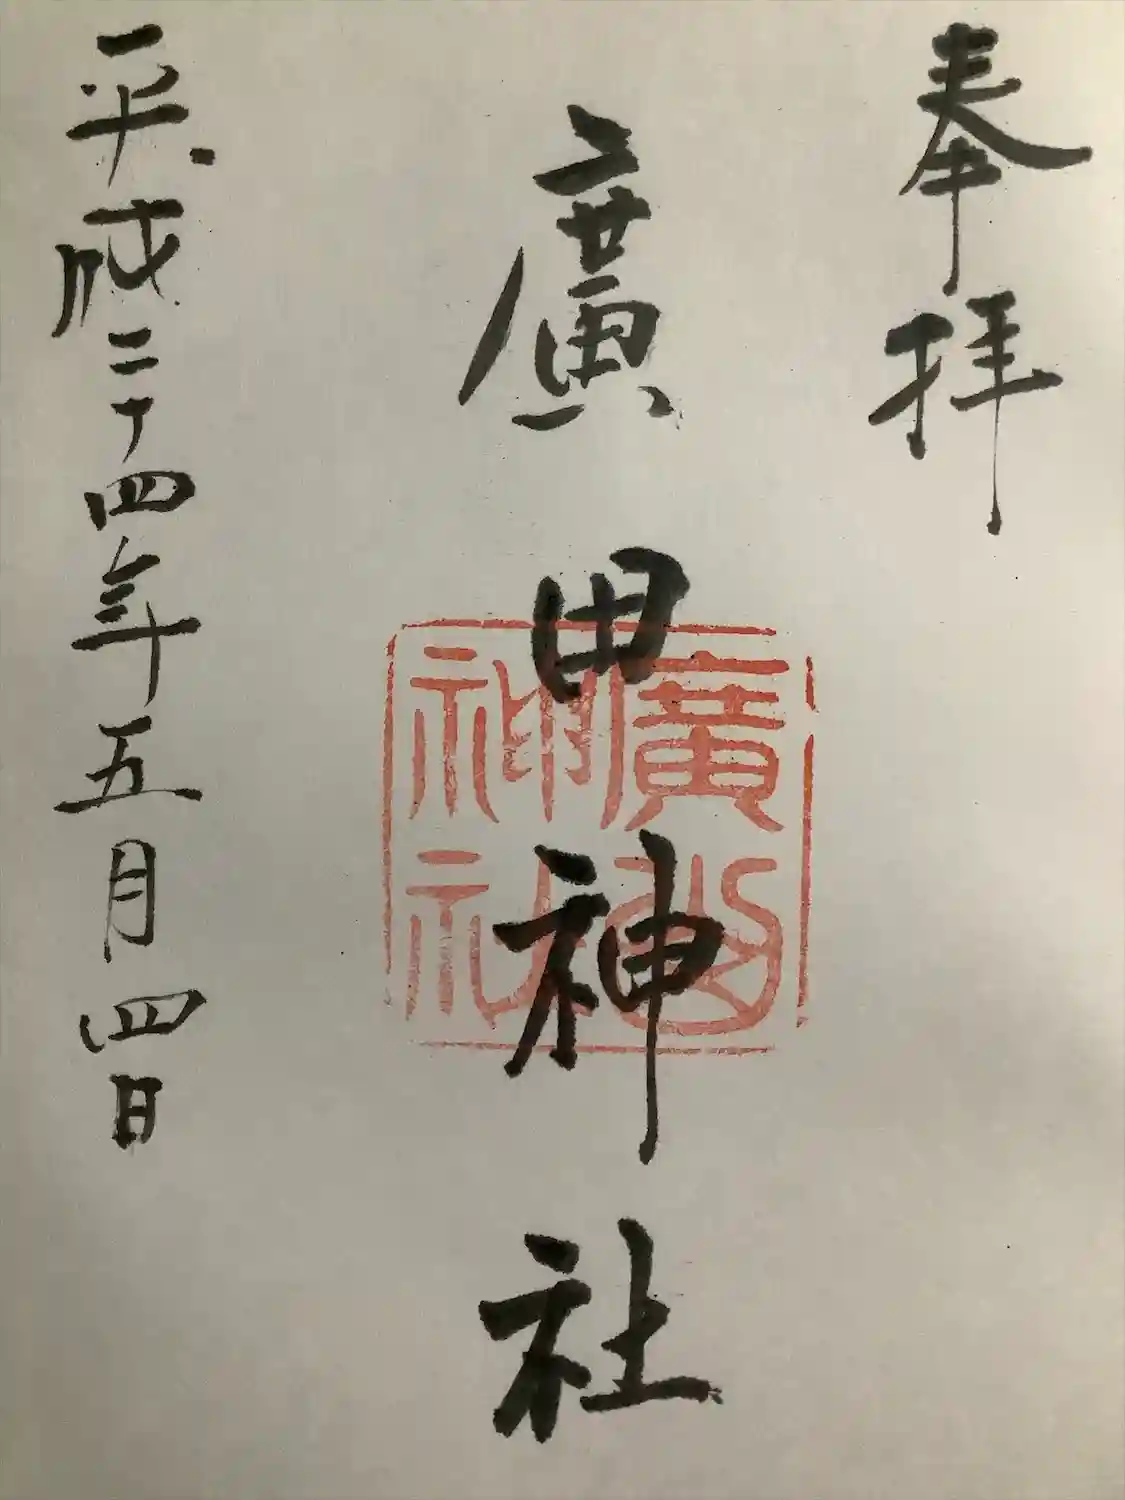 奉拝
廣田神社
廣
神社
平成二十四年五月四日